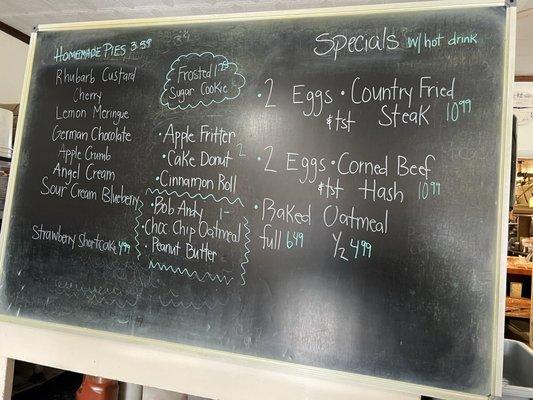 HOMEMADE PIES 3.59
Rhubarb Custard
Cherry
Lemon Meringue
German Chocolate
Apple Crumb
Angel Cream
Sour Cream Blueberry
Strawberry Shortcake 4.99
Frosted 1.25
Sugar Cookie
• Apple Fritter
• Cake Donut 2
• Cinnamon Roll
• Bob Andy 1-
• Choc Chip Oatmeal
• Peanut Butter
Specials w/ hot drink
• 2 Eggs • Country Fried
& tst Steak 10.99
• 2 Eggs • Corned Beef
& tst Hash 10.99
• Baked Oatmeal
full 6.49 1/2 4.99